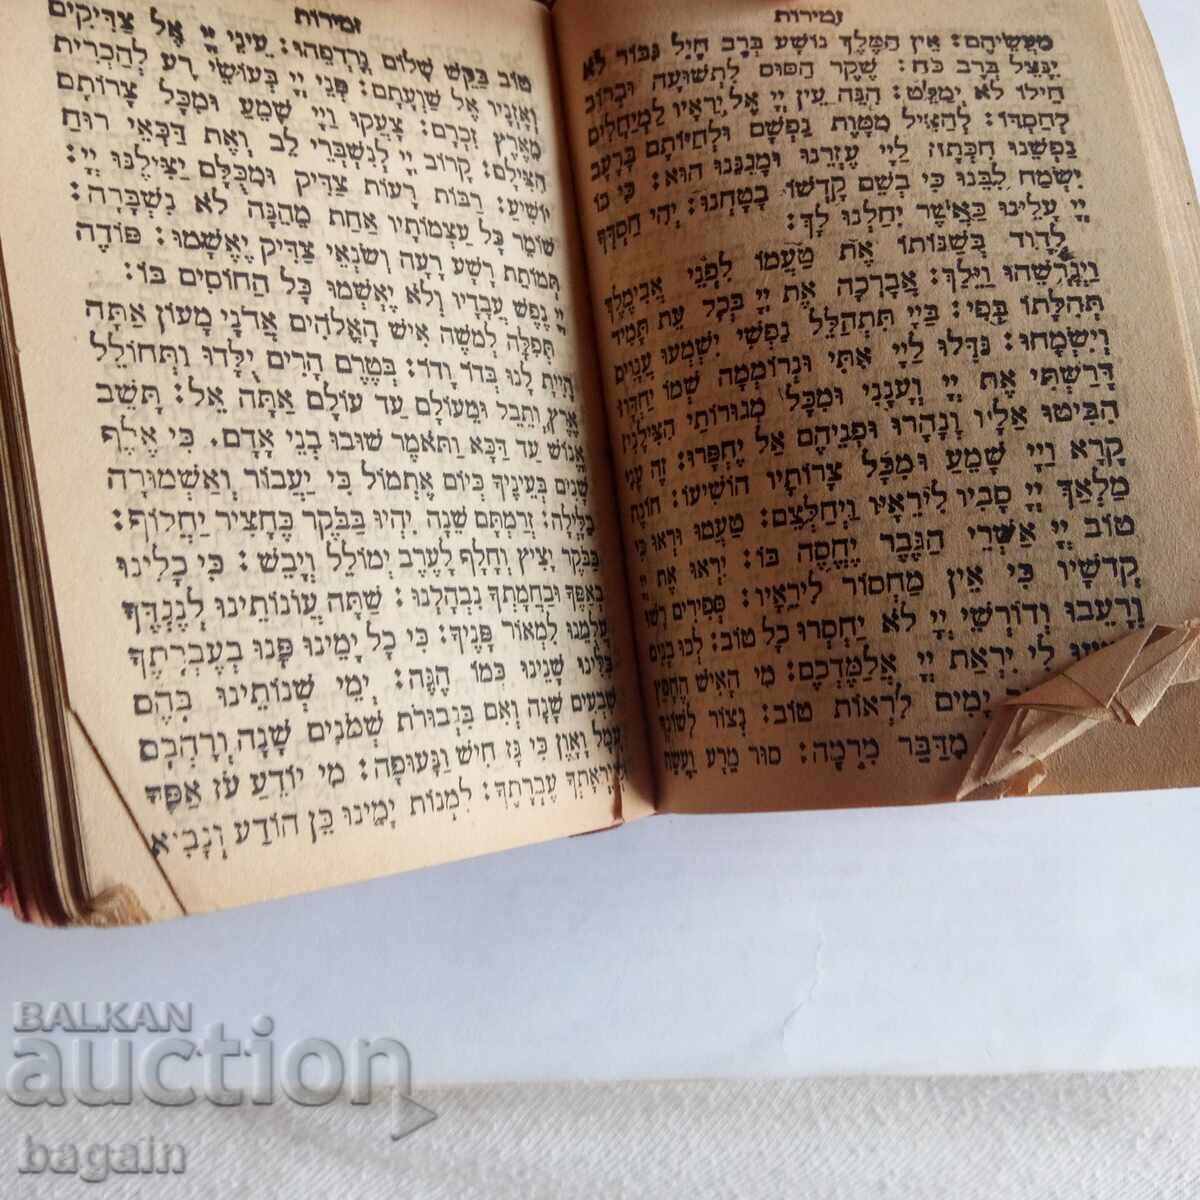 זמירות
מעשיהם: אין המלך נושע ברב חיל גבור לא
ינצל ברב כח: שקר הסוס לתשועה וברוב
חילו לא ימלט: הנה עין יי אל יראיו למיחלים
לחסדו: להציל ממות נפשם ולחיותם ברעב
נפשנו חכתה ליי עזרנו ומגננו הוא: כי בו
ישמח לבנו כי בשם קדשו בטחנו: יהי חסדך
יי עלינו כאשר יחלנו לך:
לדוד בשנותו את טעמו לפני אבימלך
ויגרשהו וילך: אברכה את יי בכל עת תמיד
תהלתו בפי: ביי תתהלל נפשי ישמעו ענוים
וישמחו: גדלו ליי אתי ונרוממה שמו יחדו
דרשתי את יי וענני ומכל מגורותי הצילני
הביטו אליו ונהרו ופניהם אל יחפרו: זה עני
קרא ויי שמע ומכל צרותיו הושיעו: חונה
מלאך יי סביב ליראיו ויחלצם: טעמו וראו כי
טוב יי אשרי הגבר יחסה בו: יראו את יי
קדשיו כי אין מחסור ליראיו: כפירים רשו
ורעבו ודורשי יי לא יחסרו כל טוב: לכו בנים
לי יראת יי אלמדכם: מי האיש החפץ
ימים לראות טוב: נצור לשונך
מדבר מרמה: סור מרע ועשה
זמירות
טוב בקש שלום ורדפהו: עיני יי אל צדיקים
ואזניו אל שועתם: פני יי בעושי רע להכרית
מארץ זכרם: צעקו ויי שמע ומכל צרותם
הצילם: קרוב יי לנשברי לב ואת דכאי רוח
יושיע: רבות רעות צדיק ומכלם יצילנו יי:
שומר כל עצמותיו אחת מהנה לא נשברה:
תמותת רשע רעה ושנאי צדיק יאשמו: פודה
יי נפש עבדיו ולא יאשמו כל החוסים בו:
תפלה למשה איש האלהים אדני מעון אתה
היית לנו בדור ודור: בטרם הרים ילדו ותחולל
ארץ ותבל ומעולם עד עולם אתה אל: תשב
אנוש עד דכא ותאמר שובו בני אדם. כי אלף
שנים בעיניך כיום אתמול כי יעבור ואשמורה
בלילה: זרמתם שנה יהיו בבקר כחציר יחלוף:
בבקר יציץ וחלף לערב ימולל ויבש: כי כלינו
באפך ובחמתך נבהלנו: שתה עונותינו לנגדך
עלמנו למאור פניך: כי כל ימינו פנו בעברתך
כלינו שנינו כמו הגה: ימי שנותינו בהם
שבעים שנה ואם בגבורת שמנים שנה ורהבם
עמל ואון כי גז חיש ונעופה: מי יודע עז אפך
וכיראתך עברתך: למנות ימינו כן הודע ונביא
BALKAN
auction
bagain